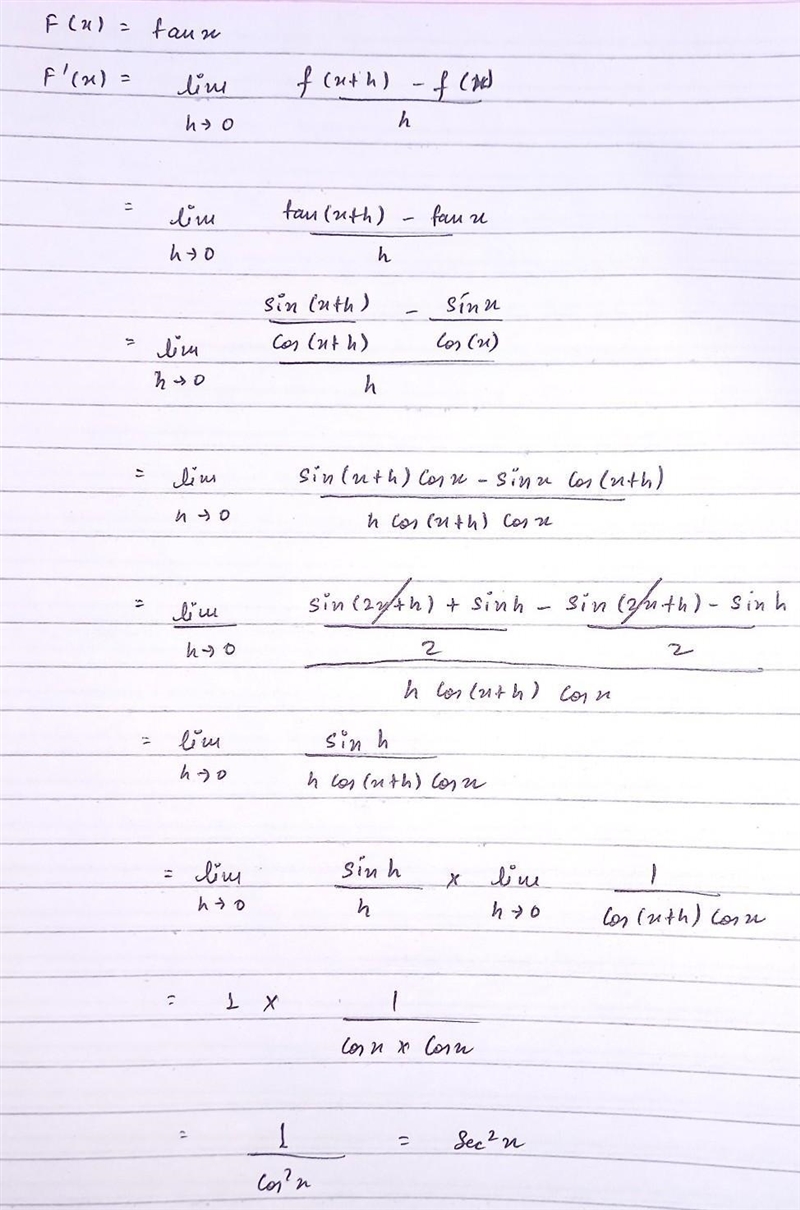 F(x) = tan x
F'(x) = lim h→0 f(x+h) - f(x) / h
= lim h→0 tan(x+h) - tan x / h
= lim h→0 sin(x+h) / cos(x+h) - sin x / cos(x) / h
= lim h→0 sin(x+h) cos x - sin x cos(x+h) / h cos(x+h) cos x
= lim h→0 sin(2x+h) + sin h / 2 - sin(2x+h) - sin h / 2 / h cos(x+h) cos x
= lim h→0 sin h / h cos(x+h) cos x
= lim h→0 sin h / h × lim h→0 1 / cos(x+h) cos x
= 1 × 1 / cos x × cos x
= 1 / cos²x = sec²x